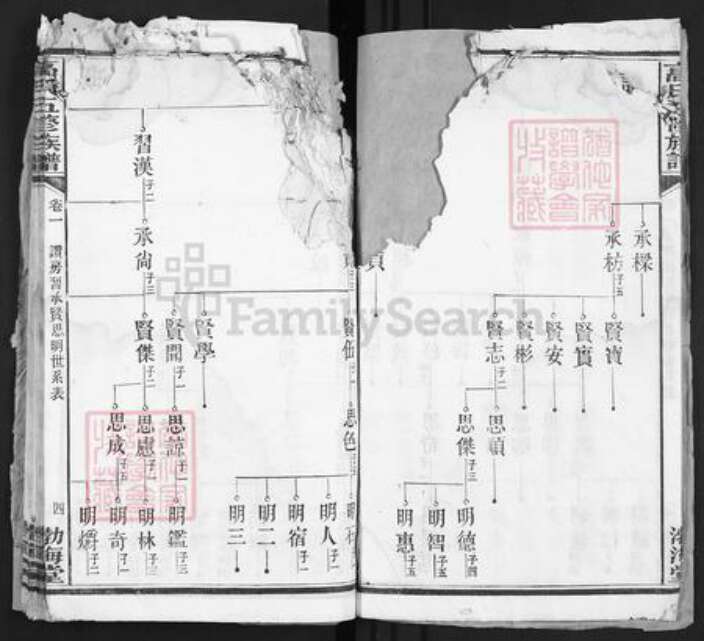 承樑
承枋 子五
賢寶
賢實
賢安
賢彬
賢志 子二
思頴
思傑 子三
明德 子四
明智 子五
明惠 子五
習漢 子二
承尙 子三
賢學
賢開 子一
賢傑 子二
思諒 子一
思慮 子一
思成
思色
明人 子一
明宿 子一
明二
明三
明鑑 子三
明林 子三
明奇 子一
明爝 子二
高氏五修族譜
卷一
讃房習承賢思明世系表
四
渤海堂
FamilySearch